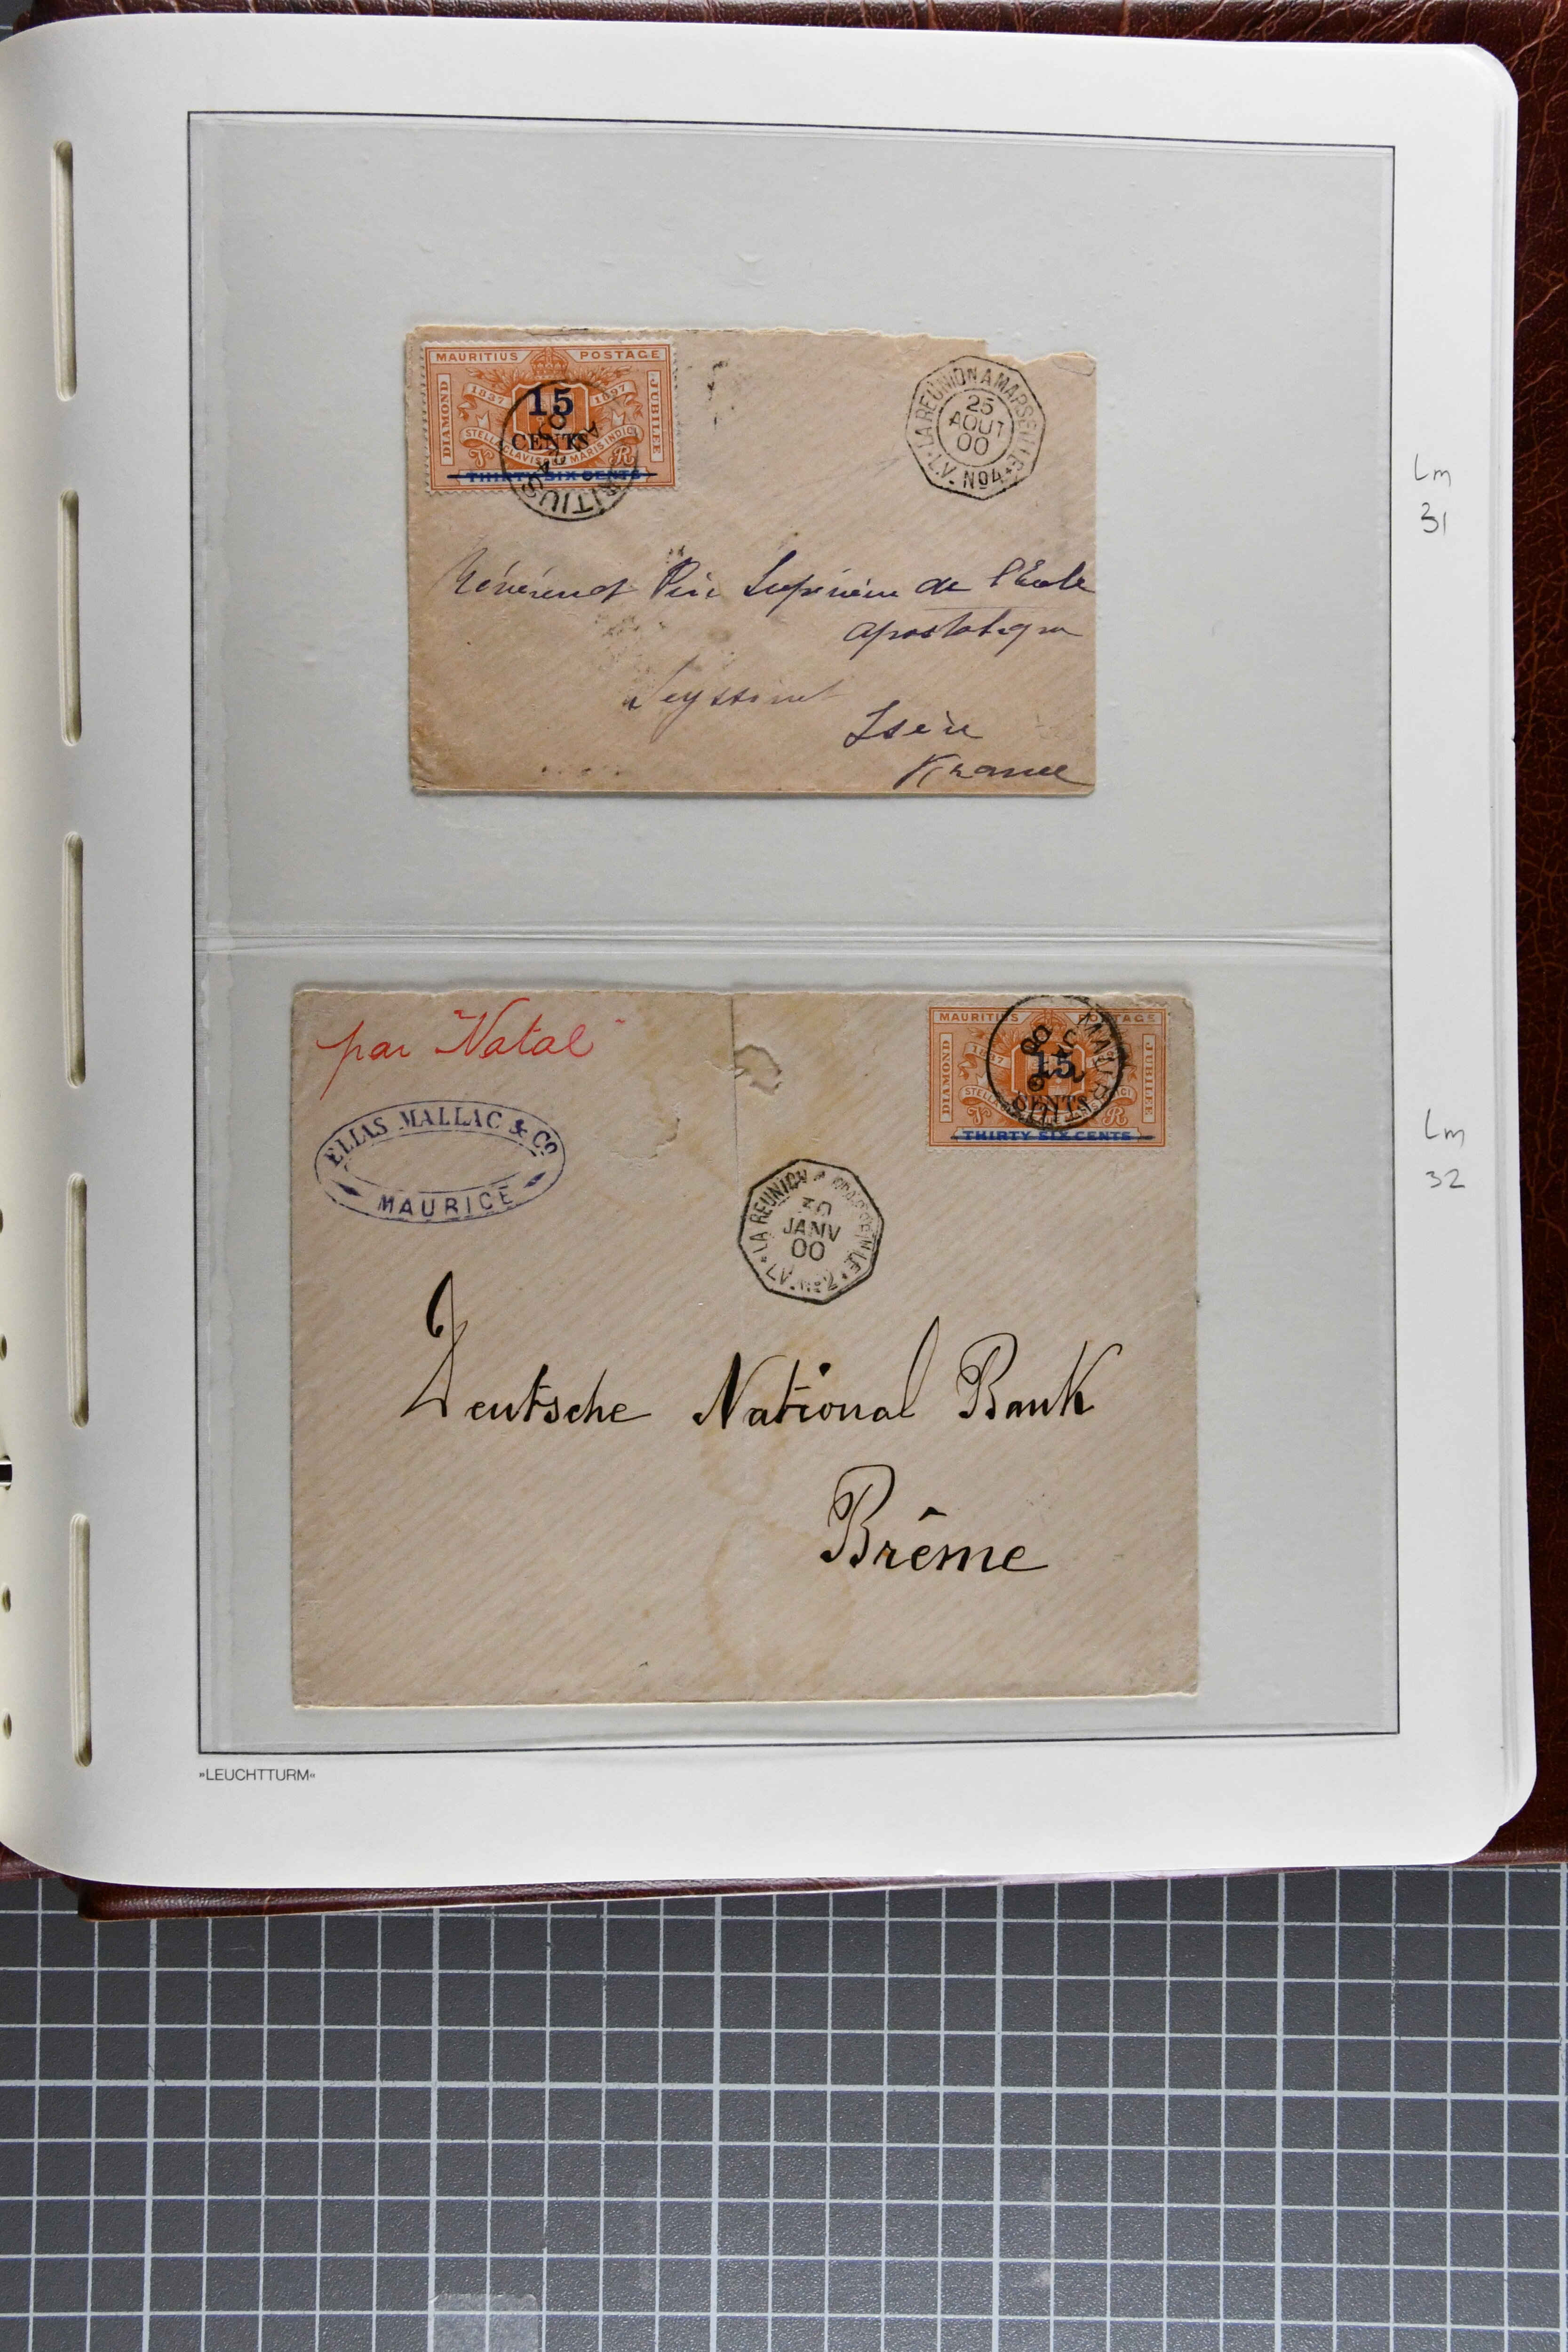 MAURITIUS POSTAGE
DIAMOND
JUBILEE
1837 1897
15
CENTS
STELLA CLAVISQUE MARIS INDICI
THIRTY SIX CENTS
LA REUNION A MARSEILLE
25
AOUT
00
L.V. No4
Révérend Père Supérieur de l'Ecole
apostolique
Seyssinet
Isère
France
Lm
31
par "Natal"
MAURITIUS POSTAGE
DIAMOND
JUBILEE
15
CENTS
THIRTY SIX CENTS
MAURITIUS
ELIAS MALLAC & Co
MAURICE
LA REUNION A MARSEILLE
30
JANV
00
L.V. No2
Deutsche National Bank
Brême
Lm
32
»LEUCHTTURM«